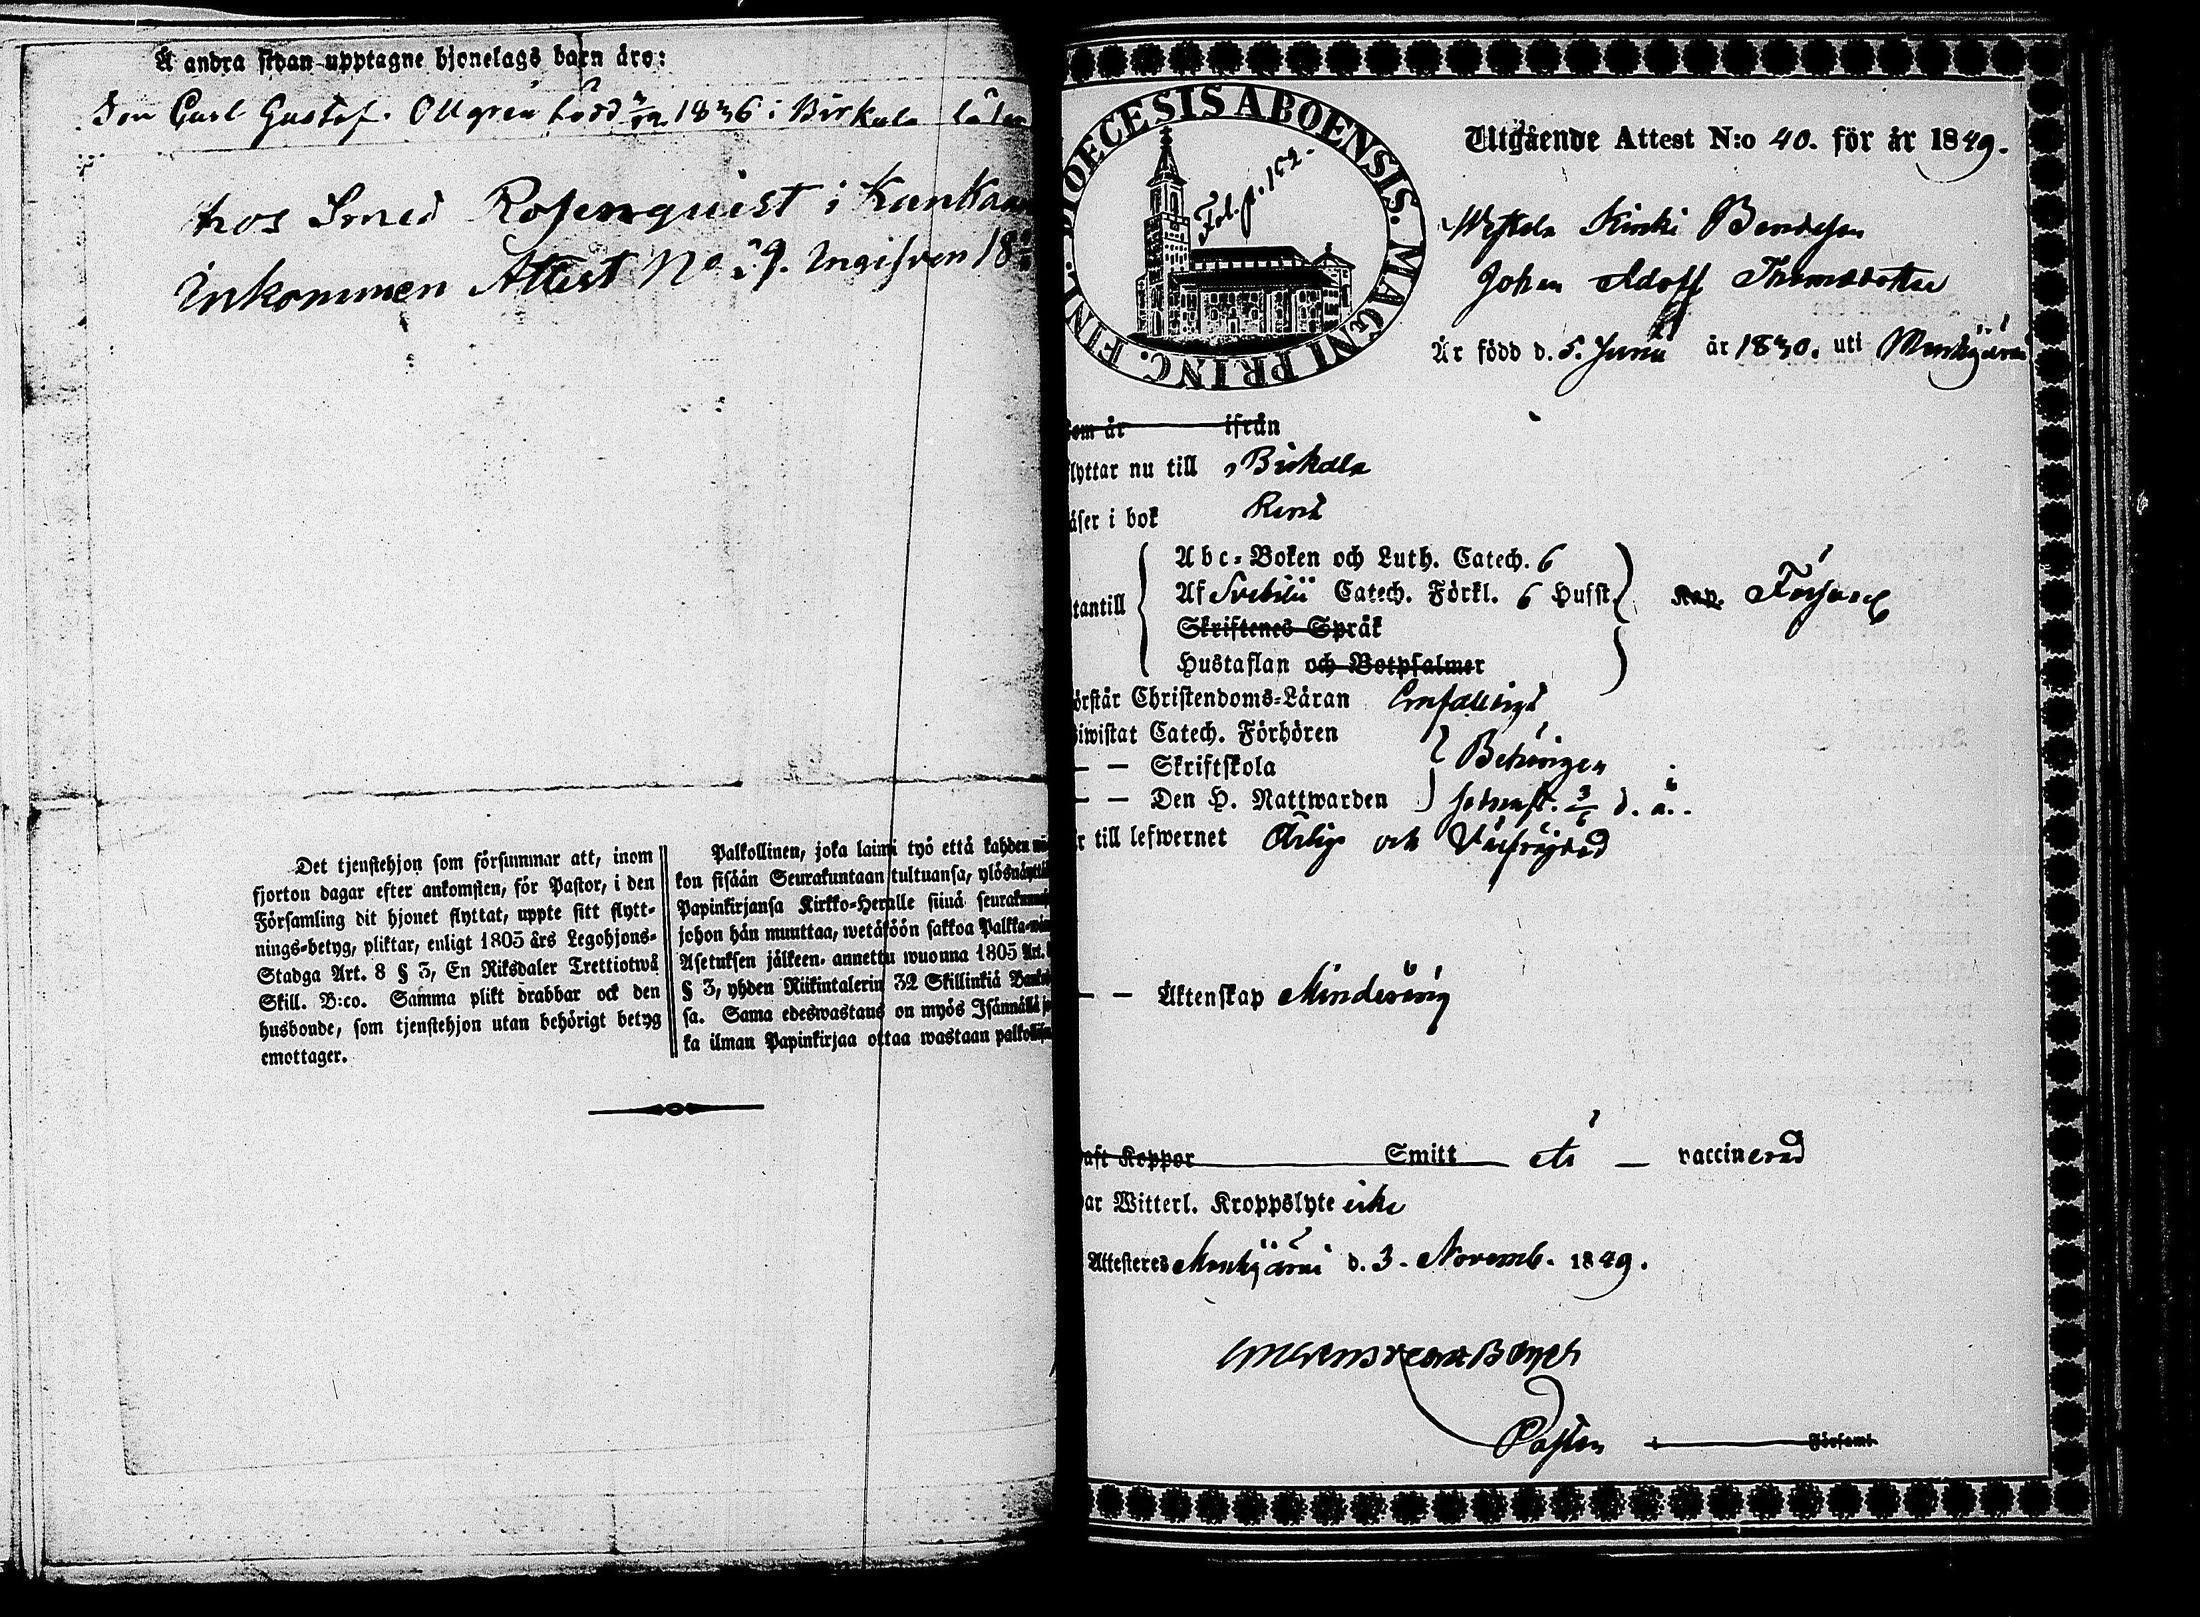 Å andra sidan upptagne hjonelags barn äro:
Son Carl Gustaf Ollgren född 1836 i Birkala
hos Smed Rosenquist i
Inkommen Attest No 29.
Det tjenstehjon som försummar att, inom
fjorton dagar efter ankomsten, för Pastor, i den
Församling dit hjonet flyttat, uppte sitt flytt-
nings-betyg, pliktar, enligt 1805 års Legohjons-
Stadga Art. 8 § 3, En Riksdaler Trettiotwå
Skill. B:co. Samma plikt drabbar ock den
husbonde, som tjenstehjon utan behörigt betyg
emottager.
Palkollinen, joka laimi työ että kahden
kon sisään Seurakuntaan tultuansa, ylösnäyttä
Papinkirjansa Kirkko-Herralle siinä seurakunna
johon hän muuttaa, wetäköön sakkoa Palkka-
Asetuksen jälkeen annettu wuonna 1805 Art.
§ 3, yhden Riikintalerin 32 Skillinkiä Banko
sa. Sama edeswastaus on myös Isännällä jo
ka ilman Papinkirjaa ottaa wastaan palkollisen
DIOECESIS ABOENSIS. MAGNI PRINC. FINL.
Fol. p. 152.
Utgående Attest N:o 40. för år 1849.
Bondeson
Johan Adolf
Är född d. 5. Junii år 1830. uti Mouhijärvi
som är ifrån
flyttar nu till Birkala
läser i bok Rent
utantill
Abc-Boken och Luth. Catech. 6
Af Svebilii Catech. Förkl. 6 Hufst.
Försvarl
Skriftenes Språk
Hustaflan och Botpsalmer
förstår Christendoms-Läran Enfalligt
Biwistat Catech. Förhören
— — Skriftskola Behörigen
— — Den H. Nattwarden sednast. 3/6 d. å.
är till lefwernet Ärlig och Välfrejdad
— — Äktenskap Minderårig
haft Koppor Smitt — vaccinerad
har Witterl. Kroppslyte icke
Attesteres Mouhijärvi d. 3. Novemb. 1849.
Pastor i Församl.